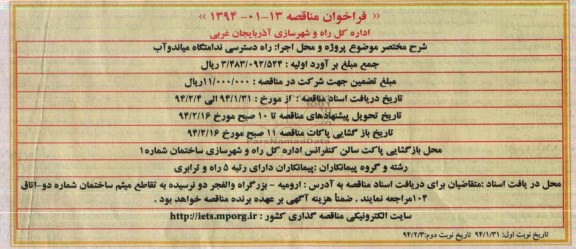 « فراخوان مناقصه ۱۳-۰۱- ۱۳۹۴ »
اداره کل راه و شهرسازی آذربایجان غربی
شرح مختصر موضوع پروژه و محل اجرا: راه دسترسی ندامتگاه میاندوآب
جمع مبلغ بر آورد اولیه : ۳/۴۸۳/۰۹۲/۵۲۴ ریال
مبلغ تضمین جهت شرکت در مناقصه : ۱۱/۰۰۰/۰۰۰ریال
تاریخ دریافت اسناد مناقصه : از مورخ : ۹۴/۱/۳۱ الی ۹۴/۲/۴
تاریخ تحویل پیشنهادهای مناقصه تا ۱۰ صبح مورخ ۹۴/۲/۱۶
تاریخ باز گشایی پاکات مناقصه ۱۱ صبح مورخ ۹۴/۲/۱۶
محل بازگشایی پاکت سالن کنفرانس اداره کل راه و شهرسازی ساختمان شماره۱
رشته و گروه پیمانکاران :پیمانکاران دارای رتبه ۵ راه و ترابری
محل در یافت اسناد :متقاضیان برای دریافت اسناد مناقصه به آدرس : ارومیه - بزرگراه والفجر دو نرسیده به تقاطع میثم ساختمان شماره دو-اتاق
۱۰۴مراجعه نمایند . ضمناً هزینه آگهی بر عهده برنده مناقصه خواهد بود .
سایت الکترونیکی مناقصه گذاری کشور : http://iets.mporg.ir
تاریخ نوبت اول: ۹۴/۱/۳۱ تاریخ نوبت دوم:۹۴/۲/۳